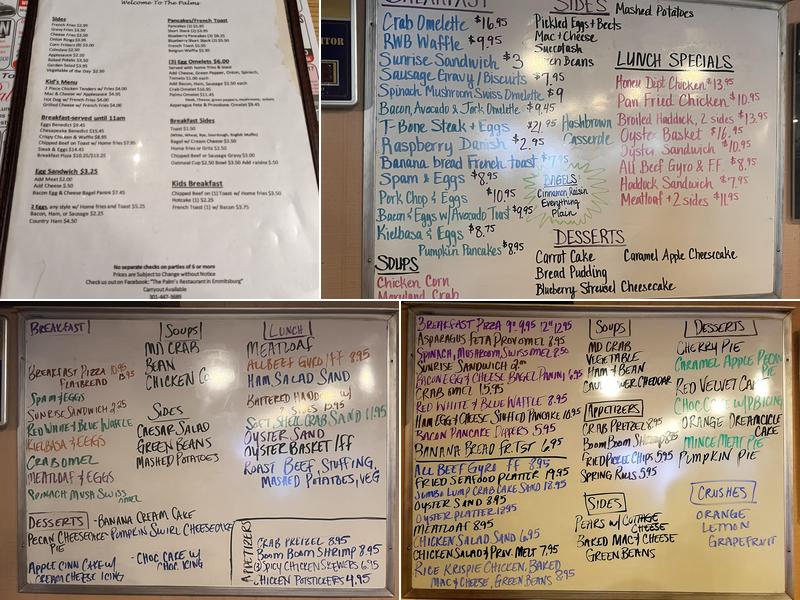 Welcome To The Palms
Sides
French Fries $2.95
Gravy Fries $3.50
Cheese Fries $3.50
Onion Rings $3.95
Coleslaw $2.50
Applesauce $2.00
Baked Potato $3.50
Garden Salad $3.95
Vegetable of the Day $2.50
Kid's Menu
2 Piece Chicken Tenders w/ Fries $4.00
Mac & Cheese w/ Applesauce $4.95
Hot Dog w/ French Fries $4.00
Grilled Cheese w/ French Fries $4.00
Breakfast-served until 11am
Eggs Benedict $9.45
Chesapeake Benedict $15.45
Crispy Chicken & Waffle $8.95
Chipped Beef on Toast w/ Home fries $7.95
Steak & Eggs $14.45
Breakfast Pizza $10.25/$13.25
Egg Sandwich $3.25
Add Meat $2.00
Add Cheese $.50
Bacon Egg & Cheese Bagel Panini $7.45
2 Eggs, any style w/ Home fries and Toast $5.25
Bacon, Ham, or Sausage $2.25
Country Ham $4.50
Pancakes/French Toast
Pancakes (1) $1.95
Short Stack (2) $3.95
French Toast $1.95
Belgian Waffle $5.95
(3) Egg Omelets $6.00
Served with Home Fries & Toast
Add Cheese, Green Pepper, Onion, Spinach,
Tomato $1.00 each
Add Bacon, Ham, Sausage $1.50 each
Crab Omelet $16.95
Palms Omelet $11.45
Asparagus Feta & Provolone Omelet $9.45
Breakfast Sides
Toast $1.50
(White, Wheat, Rye, Sourdough, English Muffin)
Bagel w/ Cream Cheese $3.50
Home fries or Grits $2.50
Chipped Beef or Sausage Gravy $3.00
Oatmeal Cup $2.50 Bowl $3.50 Add raisins $.50
Kids Breakfast
Chipped Beef on (1) Toast w/ Home fries $3.50
Hotcake (1) $2.25
French Toast (1) w/ Bacon $3.75
No separate checks on parties of 6 or more
Prices are Subject to Change without Notice
Check us out on Facebook: "The Palm's Restaurant in Emmitsburg"
Carryout Available
301-447-3689
BREAKFAST
Crab Omelette $16.95
RWB Waffle $9.95
Sunrise Sandwich $3
Sausage Gravy/Biscuits $7.95
Spinach Mushroom Swiss Omelette $9
Bacon, Avocado & Jack Omelette $9.45
T-Bone Steak + Eggs $21.95
Raspberry Danish $2.95
Banana bread French toast $7.95
Spam & Eggs $8.95
Pork Chop & Eggs $10.95
Bacon & Eggs w/ Avocado Toast $9.95
Kielbasa & Eggs $8.75
Pumpkin Pancakes $8.95
SOUPS
Chicken Corn
Maryland Crab
SIDES
Mashed Potatoes
Pickled Eggs + Beets
Mac + Cheese
Succotash
Green Beans
Hashbrown
Casserole
BAGELS
Cinnamon Raisin
Everything
Plain
LUNCH SPECIALS
Honey Dipt Chicken $13.95
Pan Fried Chicken $10.95
Broiled Haddock, 2 sides $13.95
Oyster Basket $16.95
Oyster Sandwich $10.95
All Beef Gyro & FF $8.95
Haddock Sandwich $7.95
Meatloaf + 2 sides $11.95
DESSERTS
Carrot Cake
Caramel Apple Cheesecake
Bread Pudding
Blueberry Streusel Cheesecake
BREAKFAST
BREAKFAST PIZZA 10.95
FLATBREAD 13.95
SPAM & EGGS
SUNRISE SANDWICH 2.25
RED WHITE & BLUE WAFFLE
KIELBASA & EGGS
CRAB OMEL
MEATLOAF & EGGS
SPINACH MUSH SWISS
OMEL
SOUPS
MD CRAB
BEAN
CHICKEN
SIDES
CAESAR SALAD
GREEN BEANS
MASHED POTATOES
LUNCH
MEATLOAF
ALL BEEF GYRO/FF 8.95
HAM SALAD SAND
BATTERED HADD w/
2 SIDES 13.95
SOFT SHELL CRAB SAND 11.95
OYSTER SAND
OYSTER BASKET/FF
ROAST BEEF, STUFFING,
MASHED POTATOES, VEG
DESSERTS
-BANANA CREAM CAKE
PECAN
PIE
CHEESECAKE-PUMPKIN SWIRL CHEESECAKE
APPLE CINN CAKE w/
CREAM CHEESE ICING
-CHOC CAKE w/
CHOC ICING
APPETIZERS
CRAB PRETZEL 8.95
BOOM BOOM SHRIMP 8.95
SPICY CHICKEN SKEWERS 6.95
CHICKEN POTSTICKERS 4.95
BREAKFAST PIZZA 9" 9.95 12" 12.95
ASPARAGUS FETA PROV OMEL 8.95
SPINACH, MUSHROOM, SWISS OMEL 8.50
SUNRISE SANDWICH
BACON EGG & CHEESE BAGEL PANINI 6.95
CRAB OMEL 15.95
RED WHITE & BLUE WAFFLE 8.95
HAM EGG & CHEESE STUFFED PANCAKE 10.95
BACON PANCAKE DIPPERS 5.95
BANANA BREAD FR. TST 6.95
ALL BEEF GYRO FF 8.95
FRIED SEAFOOD PLATTER 19.95
JUMBO LUMP CRAB CAKE SAND 18.95
OYSTER SAND 8.95
OYSTER PLATTER 13.95
MEATLOAF 8.95
CHICKEN SALAD SAND 6.95
CHICKEN SALAD & PROV. MELT 7.95
RICE KRISPIE CHICKEN, BAKED
MAC & CHEESE, GREEN BEANS 8.95
SOUPS
MD CRAB
VEGETABLE
HAM & BEAN
CAULIFLOWER CHEDDAR
APPETIZERS
CRAB PRETZEL 8.95
BOOM BOOM SHRIMP 8.95
FRIED PICKLE CHIPS 5.95
SPRING ROLLS 5.95
SIDES
PEARS w/ COTTAGE
CHEESE
BAKED MAC & CHEESE
GREEN BEANS
DESSERTS
CHERRY PIE
CARAMEL APPLE PECAN
PIE
RED VELVET CAKE
CHOC CAKE w/ PB ICING
ORANGE DREAMCICLE
CAKE
MINCE MEAT PIE
PUMPKIN PIE
CRUSHES
ORANGE
LEMON
GRAPEFRUIT